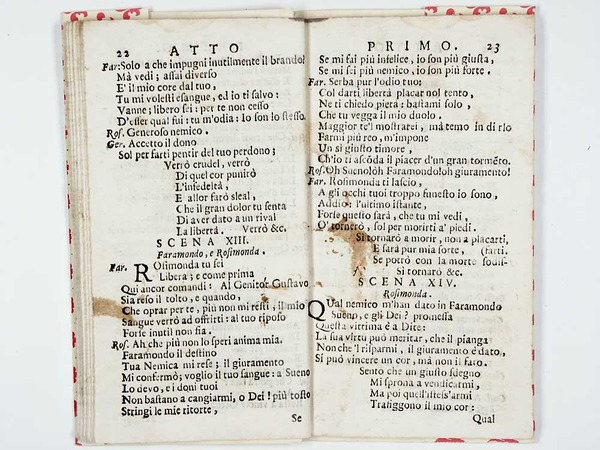 22 ATTO
Far. Solo a che impugni inutilmente il brando!
Mà vedi; assai diverso
E'il mio core dal tuo,
Tu mi volesti esangue, ed io ti salvo:
Vanne; libero sei: per te non cesso
D'esser qual fui: tu m'odia: Io son lo stesso.
Ros. Generoso nemico.
Ger. Accetto il dono
Sol per farti pentir del tuo perdono;
Verrò crudel, verrò
Di quel cor punirò
L'infedeltà,
E allor farò sleal,
Che il gran dolor tu senta
Di aver dato a un rival
La libertà. Verrò &c.
SCENA XIII.
Faramondo, e Rosimonda.
Far. ROsimonda tu sei
Libera; e come prima
Qui ancor comandi: Al Genitor Gustavo
Sia reso il tolto, e quando,
Che oprar per te, più non mi resti, il mio
Sangue verrò ad offrirti: al tuo riposo
Forse inutil non fia.
Ros. Ah che più non lo speri anima mia.
Faramondo il destino
Tua Nemica mi rese; il giuramento
Mi confermò; voglio il tuo sangue: a Sueno
Lo devo, e i doni tuoi
Non bastano a cangiarmi, o Dei! più tosto
Stringi le mie ritorte,
Se
PRIMO. 23
Se mi fai più infelice, io son più giusta,
Se mi fai più nemico, io son più forte.
Far. Serba pur l'odio tuo:
Col darti libertà placar nol tento,
Ne ti chiedo pierà: bastami solo,
Che tu vegga il mio duolo.
Maggior te'l mostrarei, mà temo in dirlo
Farmi più reo, m'impone
Un si giusto timore,
Ch'io ti ascõda il piacer d'un gran tormẽto.
Ros. Oh Sueno! òh Faramondo! oh giuramento!
Far. Rosimonda ti lascio,
A gli occhi tuoi troppo funesto io sono,
Addio: l'ultimo istante,
Forse questo sarà, che tu mi vedi,
O' tornerò, sol per morirti a' piedi.
Si tornarò a morir, non a placarti,
E sarà pur mia sorte, (farti.
Se potrò con la morte sodis-
Si tornarò &c.
SCENA XIV.
Rosimonda.
QUal nemico m'han dato in Faramondo
Sueno, e gli Dei? promessa
Questa vittima è a Dite:
La sua virtù può meritar, che il pianga
Non che'l risparmi, il giuramento è dato,
Si può vincere un cor, mà non il fato.
Sento che un giusto sdegno
Mi sprona a vendicarmi,
Ma poi quell'istess'armi
Trafiggono il mio cor:
Qual